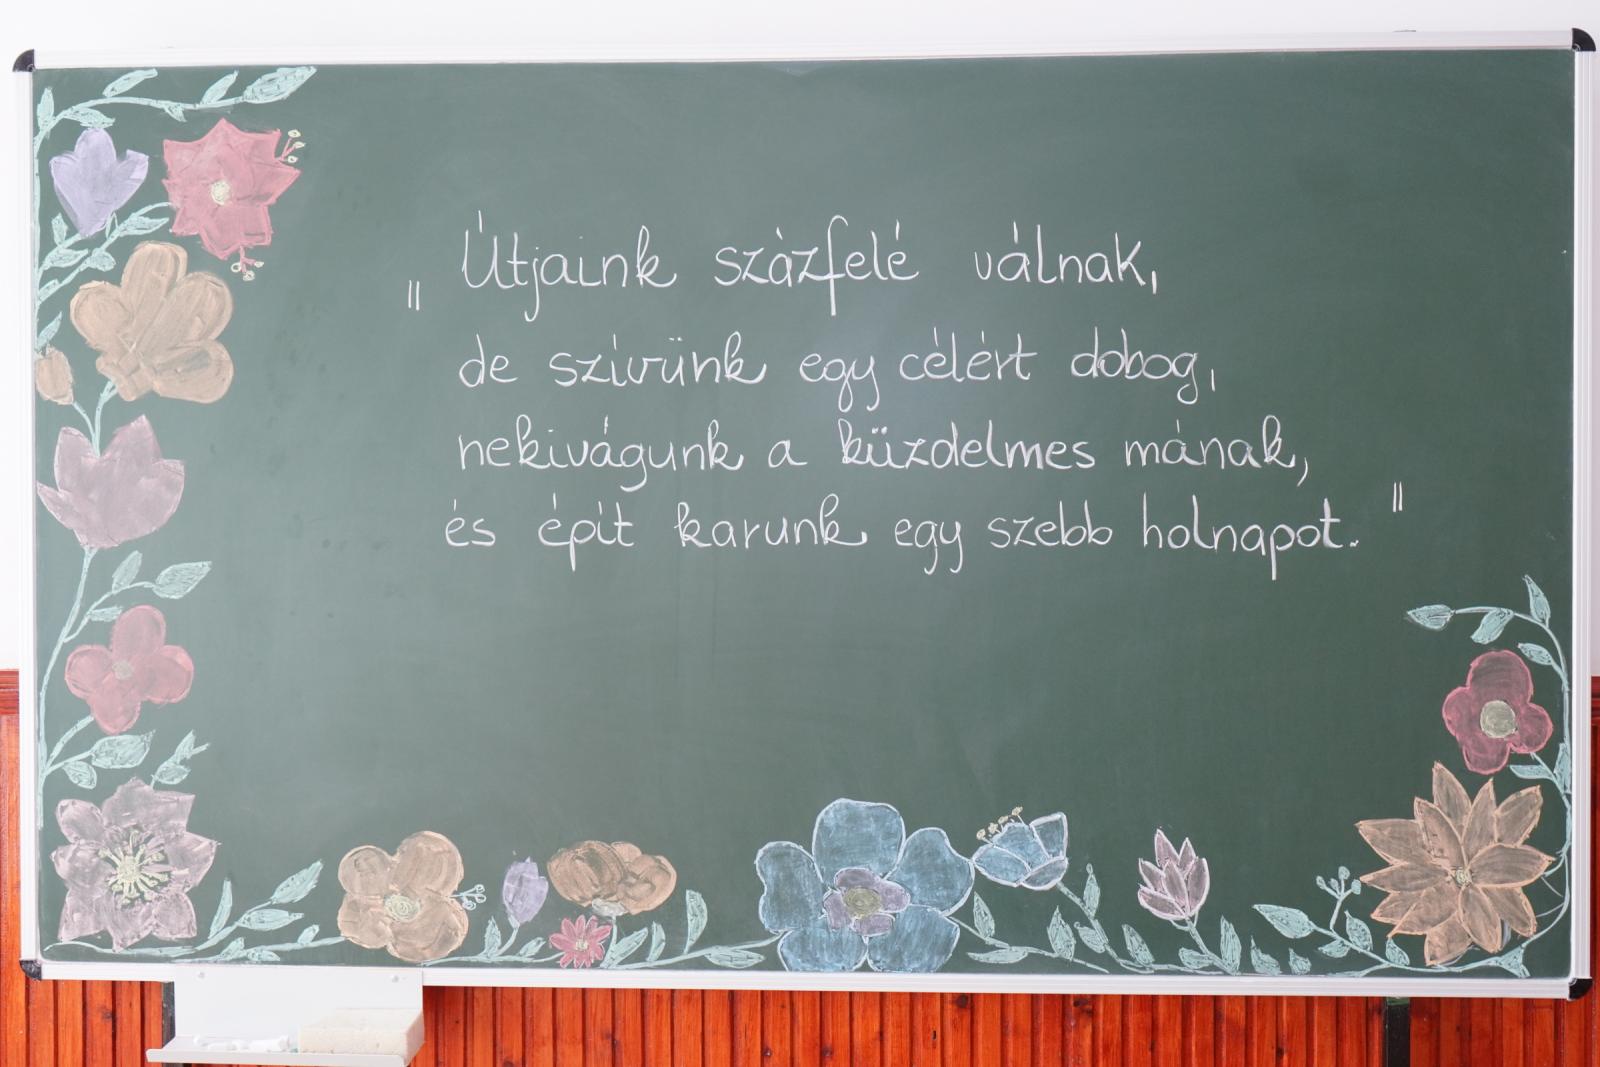 „Útjaink százfelé válnak,
de szívünk egy célért dobog,
nekivágunk a küzdelmes mának,
és épít karunk egy szebb holnapot."